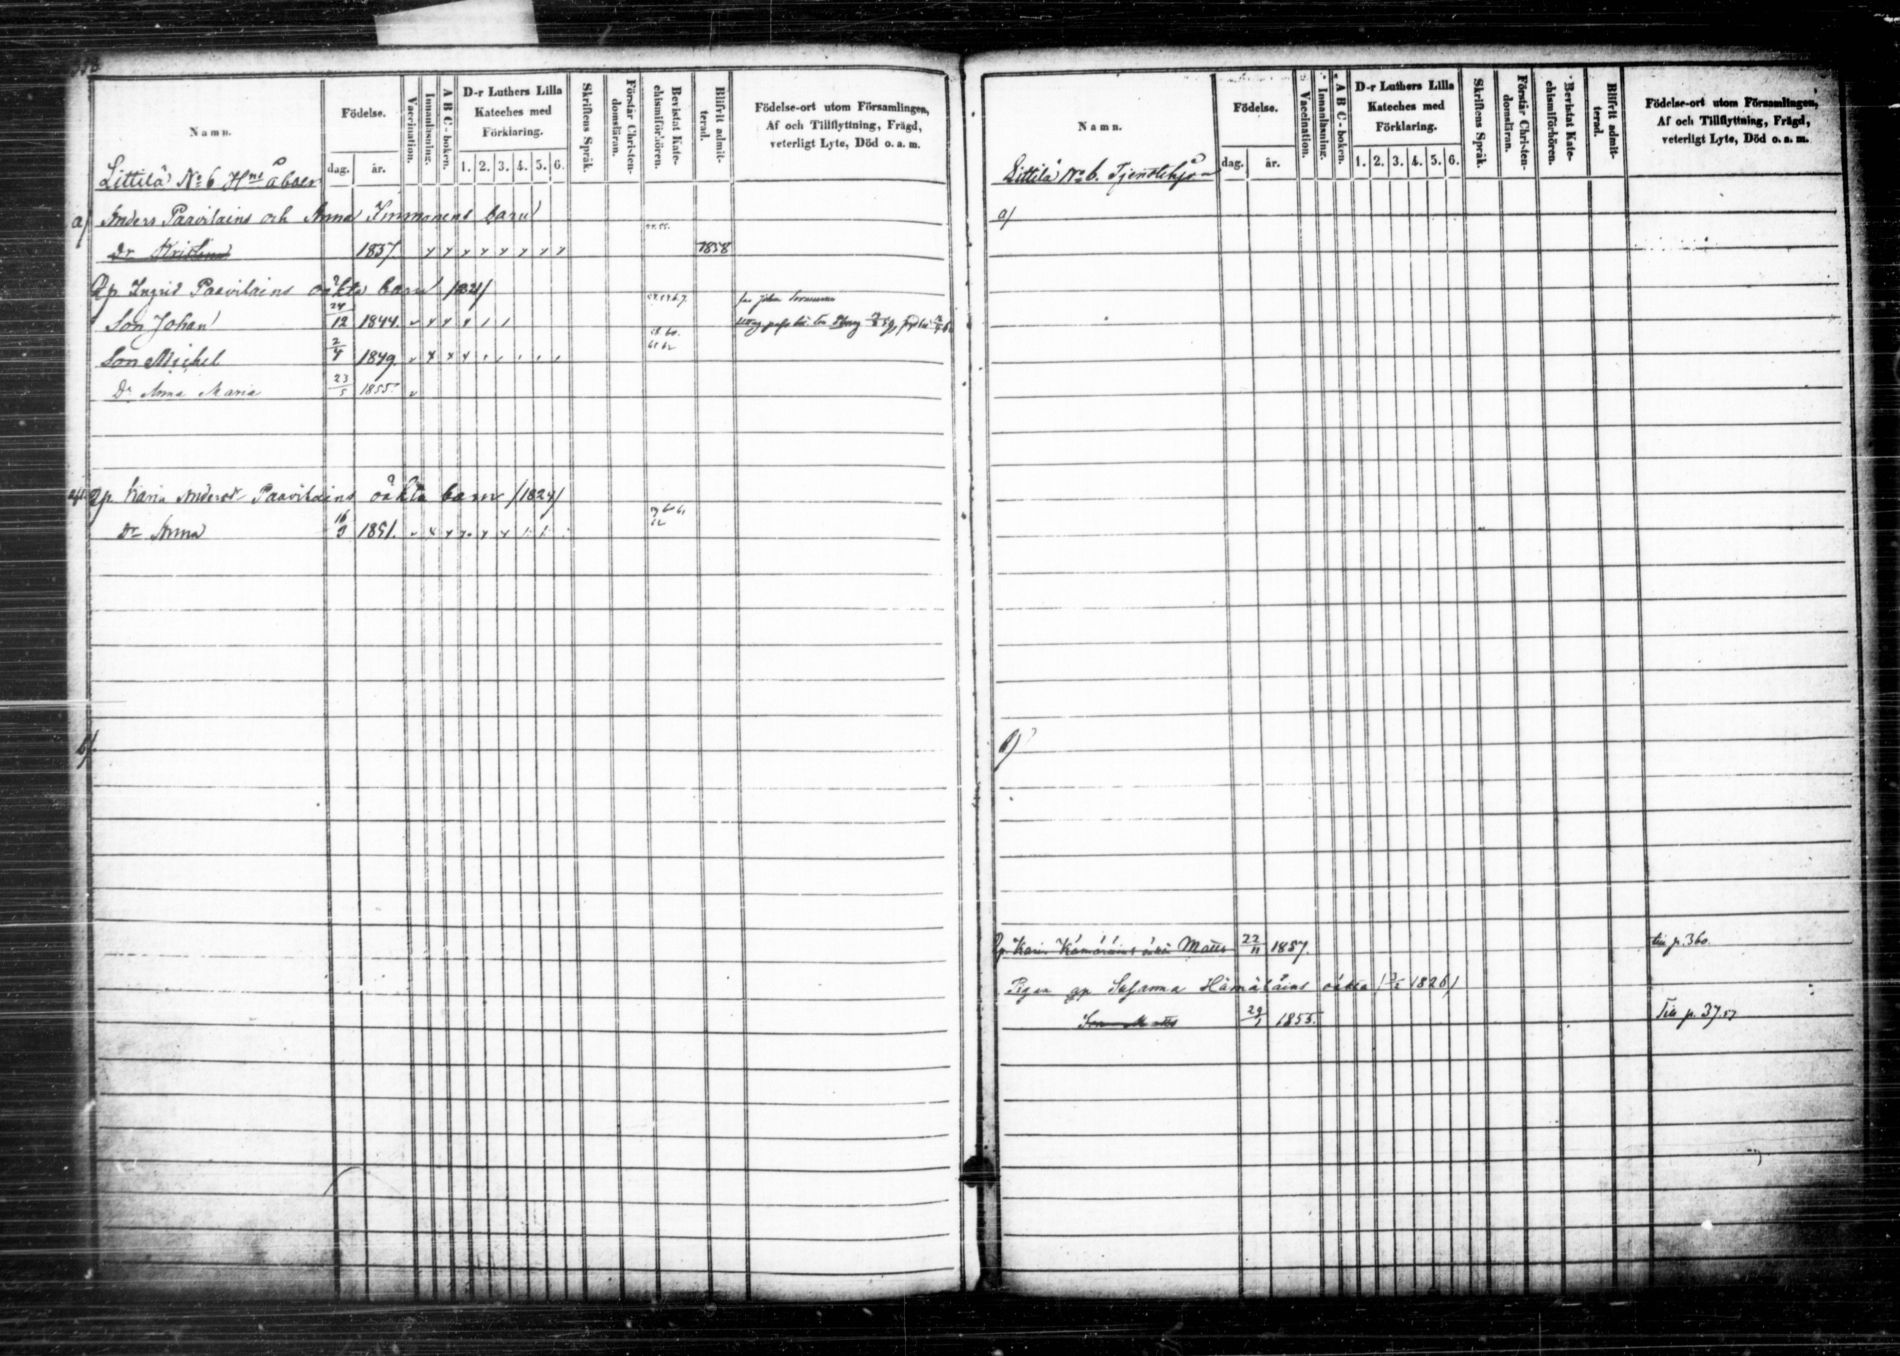 Namn.
Födelse.
dag. år.
Vaccination.
Innanläsning.
A B C-boken.
D-r Luthers Lilla
Kateches med
Förklaring.
1. 2. 3. 4. 5. 6.
Skriftens Språk.
Förstår Christen-
domsläran.
Bevistat Kate-
chismiförhören.
Blifvit admit-
terad.
Födelse-ort utom Församlingen,
Af och Tillflyttning, Frägd,
veterligt Lyte, Död o. a. m.
Littilä No 6 Hns Åboer
a) Anders Paavilains och Anna Immonens barn
Dr Kristina 1837. 1858
Qp Ingrid Paavilains oäkta barn 1821)
Son Johan 24/12 1844.
Son Michel 2/4 1849.
Dr Anna Maria 23/5 1855.
Qp. Maria Andersdr Paavilains oäkta barn (1824)
Dr Anna 16/9 1851.
b)
Namn.
Födelse.
dag. år.
Vaccination.
Innanläsning.
A B C-boken.
D-r Luthers Lilla
Kateches med
Förklaring.
1. 2. 3. 4. 5. 6.
Skriftens Språk.
Förstår Christen-
domsläran.
Bevistat Kate-
chismiförhören.
Blifvit admit-
terad.
Födelse-ort utom Församlingen,
Af och Tillflyttning, Frägd,
veterligt Lyte, Död o. a. m.
Littilä No 6. Tjenstehjon
a)
b)
Qp. Karin Matts 22/11 1857. till p. 360.
Pigan qp Susanna Hämäläins oäkta 1826)
Son Matts 29/1 1855. Till p. 37